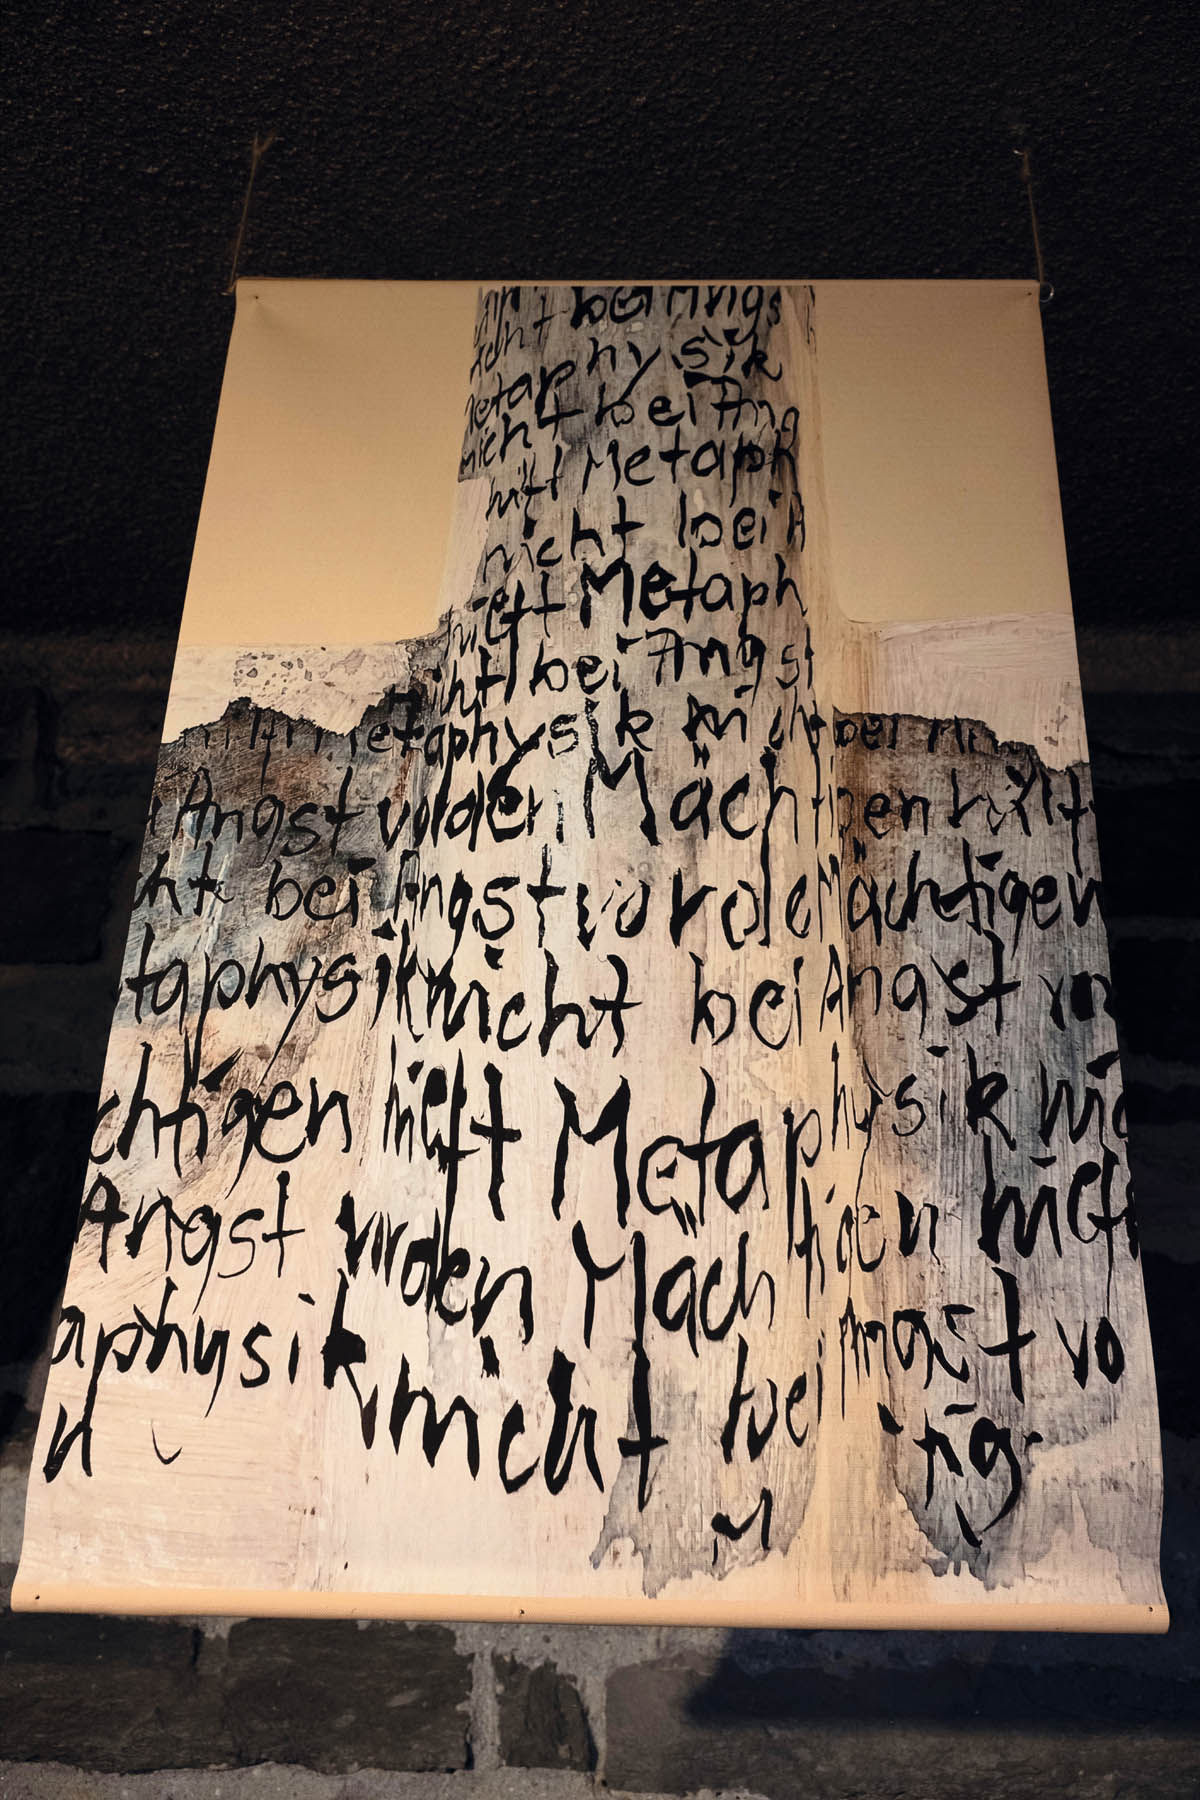 bei Angs
metaphysik
nicht bei Ang
hilft Metaph
nicht bei A
hilft Metaph
nicht bei Angst
Metaphysik nicht bei
Angst vor den Mächtigen hilft
cht bei Angst vor de Mächtigen
taphysik nicht bei Angst vor
chtigen hilft Metaphysik nic
Angst vor den Mächtigen hilft
aphysik nicht bei Angst vo
n tig
M